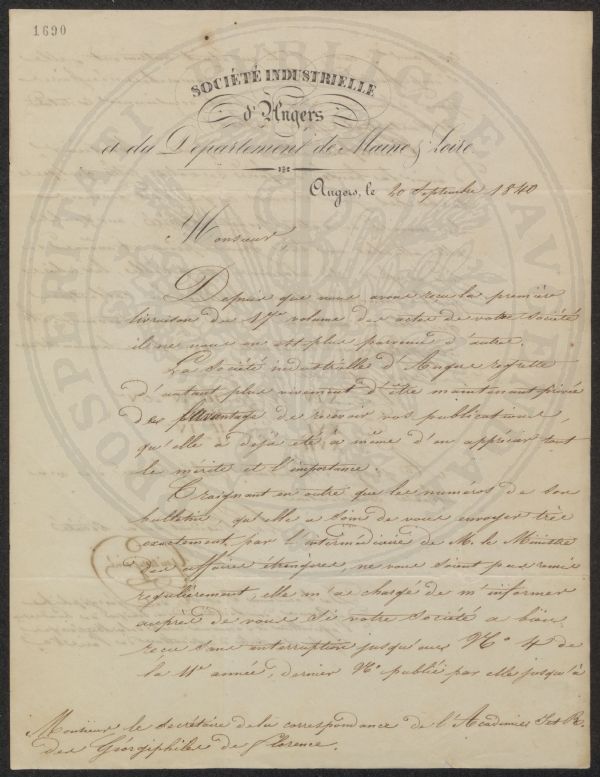 1690
SOCIÉTÉ INDUSTRIELLE
d'Angers
et du Département de Maine & Loire
Angers, le 20 Septembre 1840
Monsieur,
Depuis que nous avons reçu la première
livraison du 17e volume des actes de votre Société
il ne nous en est plus parvenu d'autre.
La Société industrielle d'Angers regrette
d'autant plus vivement d'être maintenant privée
de l'avantage de recevoir vos publications,
qu'elle a déjà été à même d'en apprécier tout
le mérite et l'importance.
Craignant en outre que les numéros de son
bulletin qu'elle a soin de vous envoyer très
exactement, par l'intermédiaire de M. le Ministre
des affaires étrangères, ne vous soient pas remis
régulièrement, elle m'a chargé de m'informer
auprès de vous si votre Société a bien
reçu sans interruption jusqu'au No 4 de
la 11e année, dernier No publié par elle jusqu'à
Monsieur le secrétaire de la correspondance de l'Académie I et R.
des Géorgiphiles de Florence.